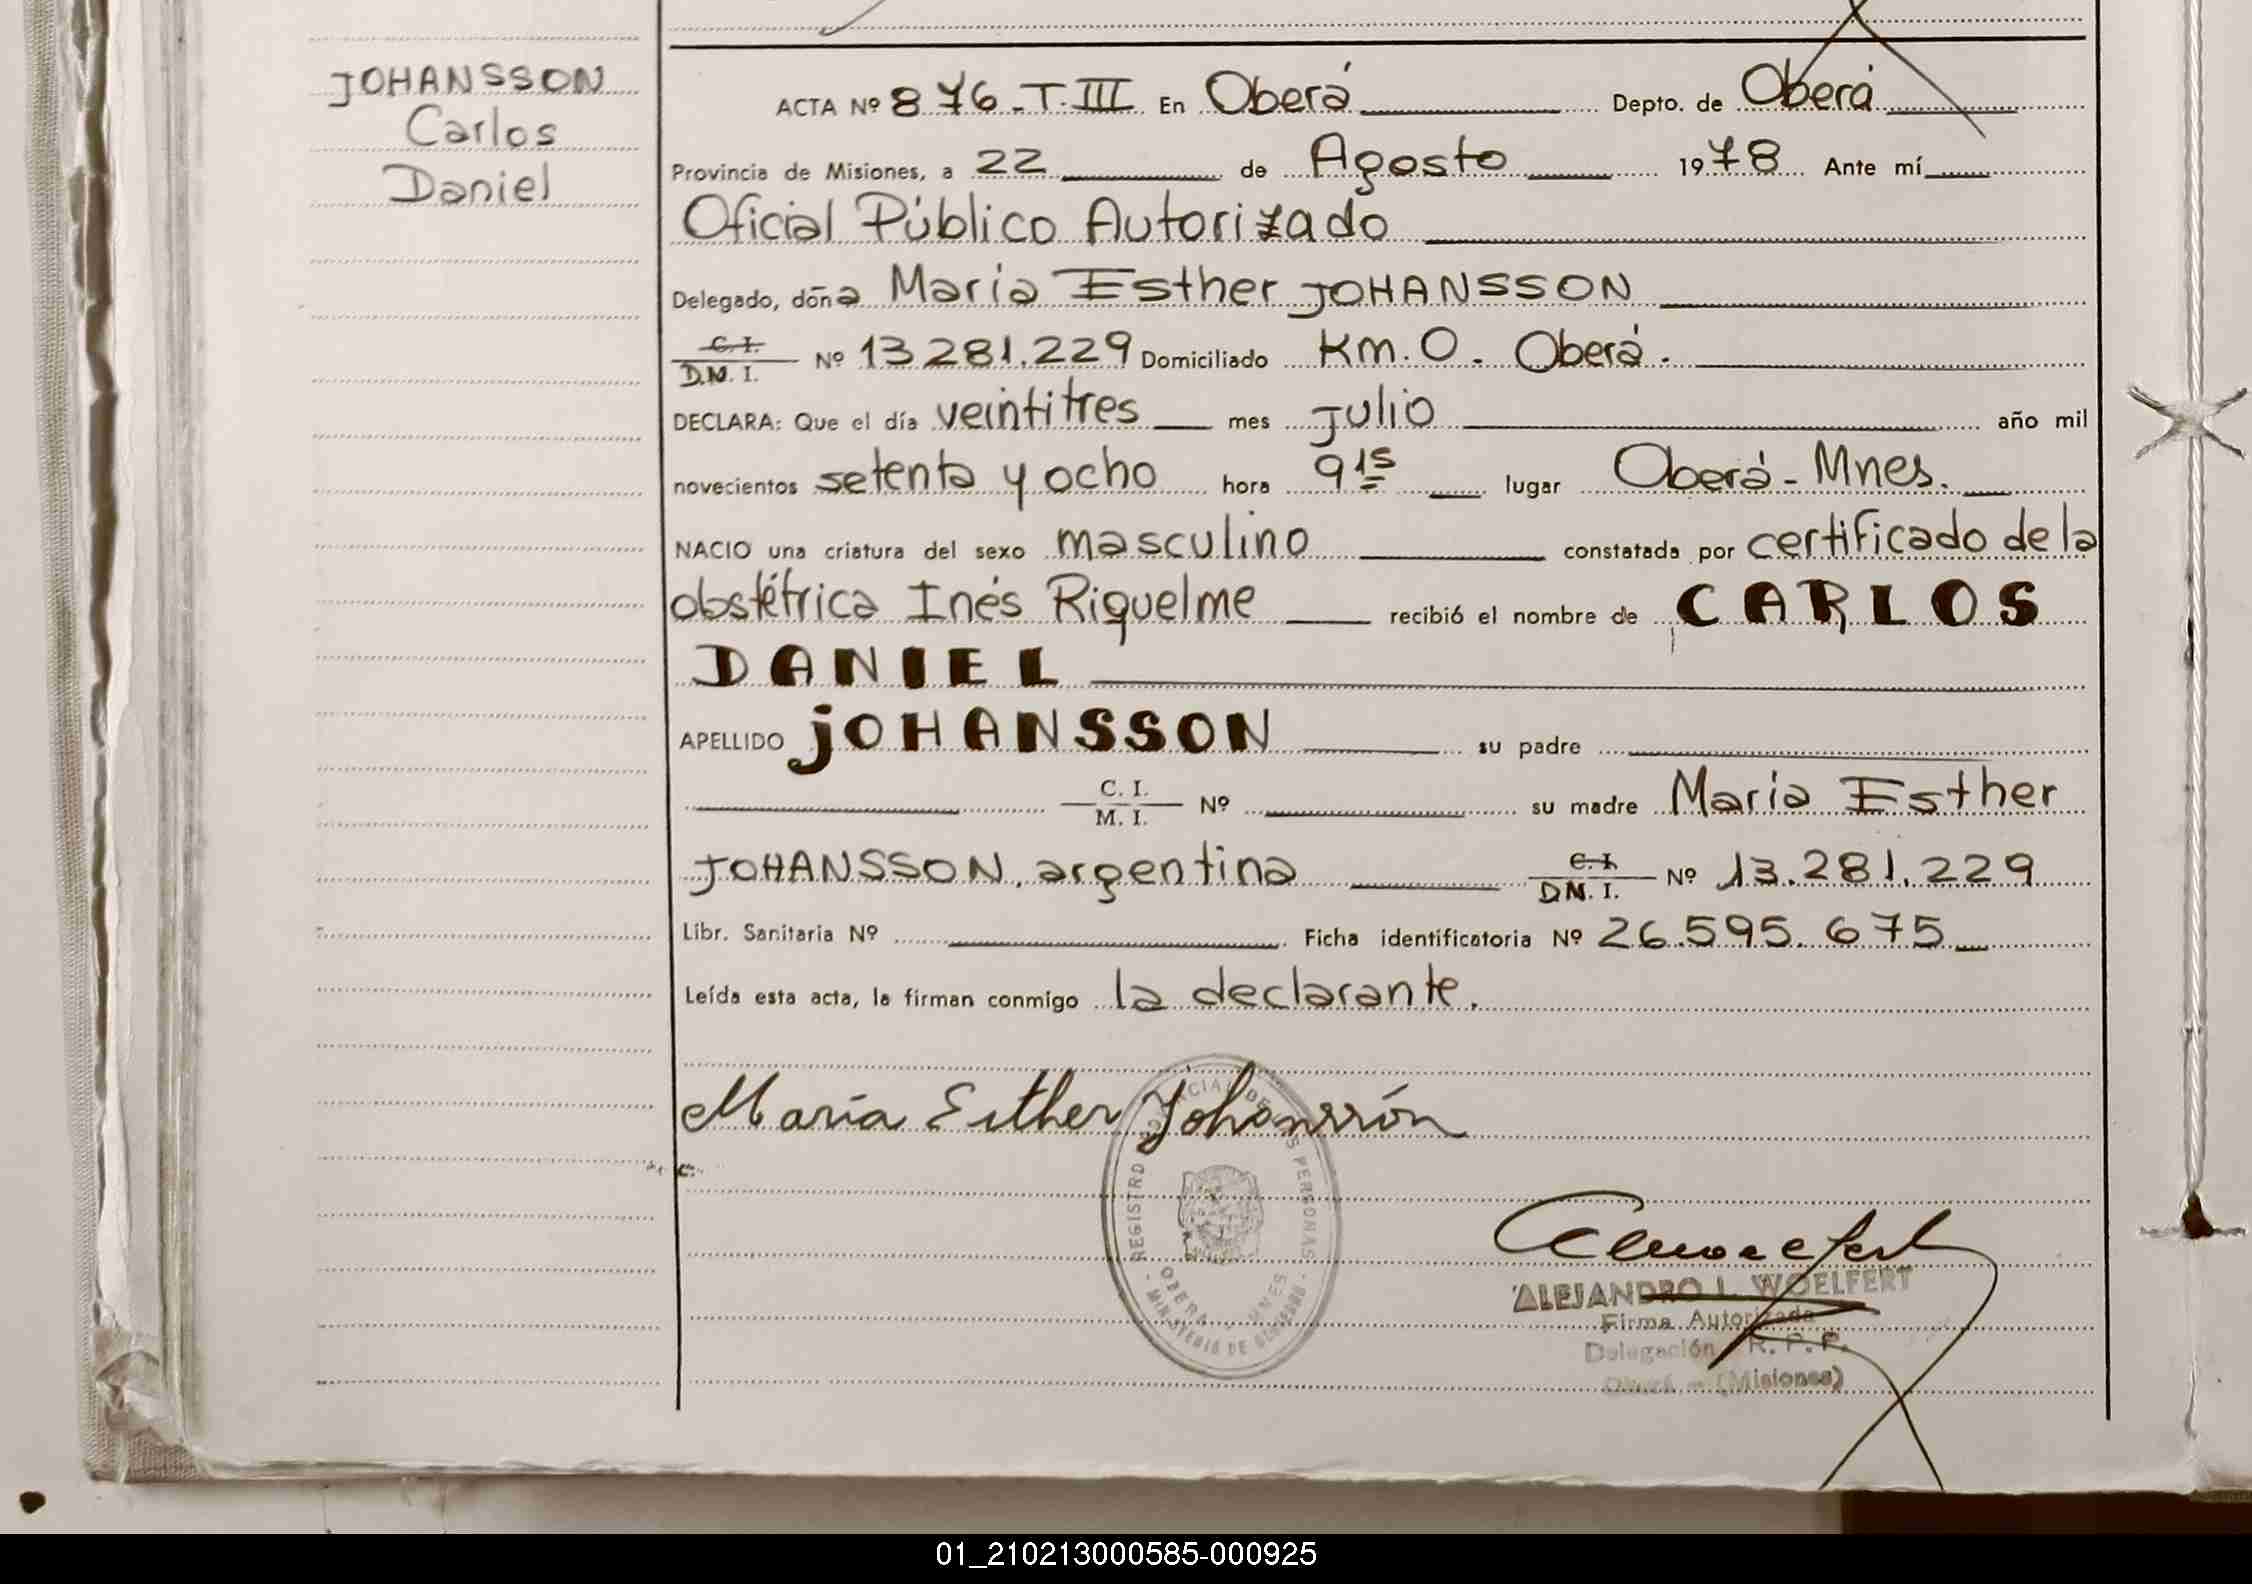 JOHANSSON
Carlos
Daniel
ACTA Nº 876-T.III En Oberá Depto. de Oberá
Provincia de Misiones, a 22 de Agosto 1978 Ante mí
Oficial Público Autorizado
Delegado, doña Maria Esther JOHANSSON
C. I.
D.N. I. Nº 13281.229 Domiciliado Km. O. Oberá.
DECLARA: Que el día veintitres mes Julio año mil
novecientos setenta y ocho hora 9 15 lugar Oberá - Mnes.
NACIO una criatura del sexo masculino constatada por certificado de la
obstétrica Inés Riquelme recibió el nombre de CARLOS
DANIEL
APELLIDO JOHANSSON su padre
C. I.
M. I. Nº su madre Maria Esther
JOHANSSON, argentina C. I. Nº 13.281.229
D.N. I.
Libr. Sanitaria Nº Ficha identificatoria Nº 26.595.675
Leída esta acta, la firman conmigo la declarante.
María Esther Johanssón
REGISTRO PROVINCIAL DE LAS PERSONAS
OBERA - MNES
- MINISTERIO DE GOBIERNO -
ALEJANDRO L. WOELFERT
Firma Autorizada
Delegación R. P. P.
Oberá - (Misiones)
01_210213000585-000925